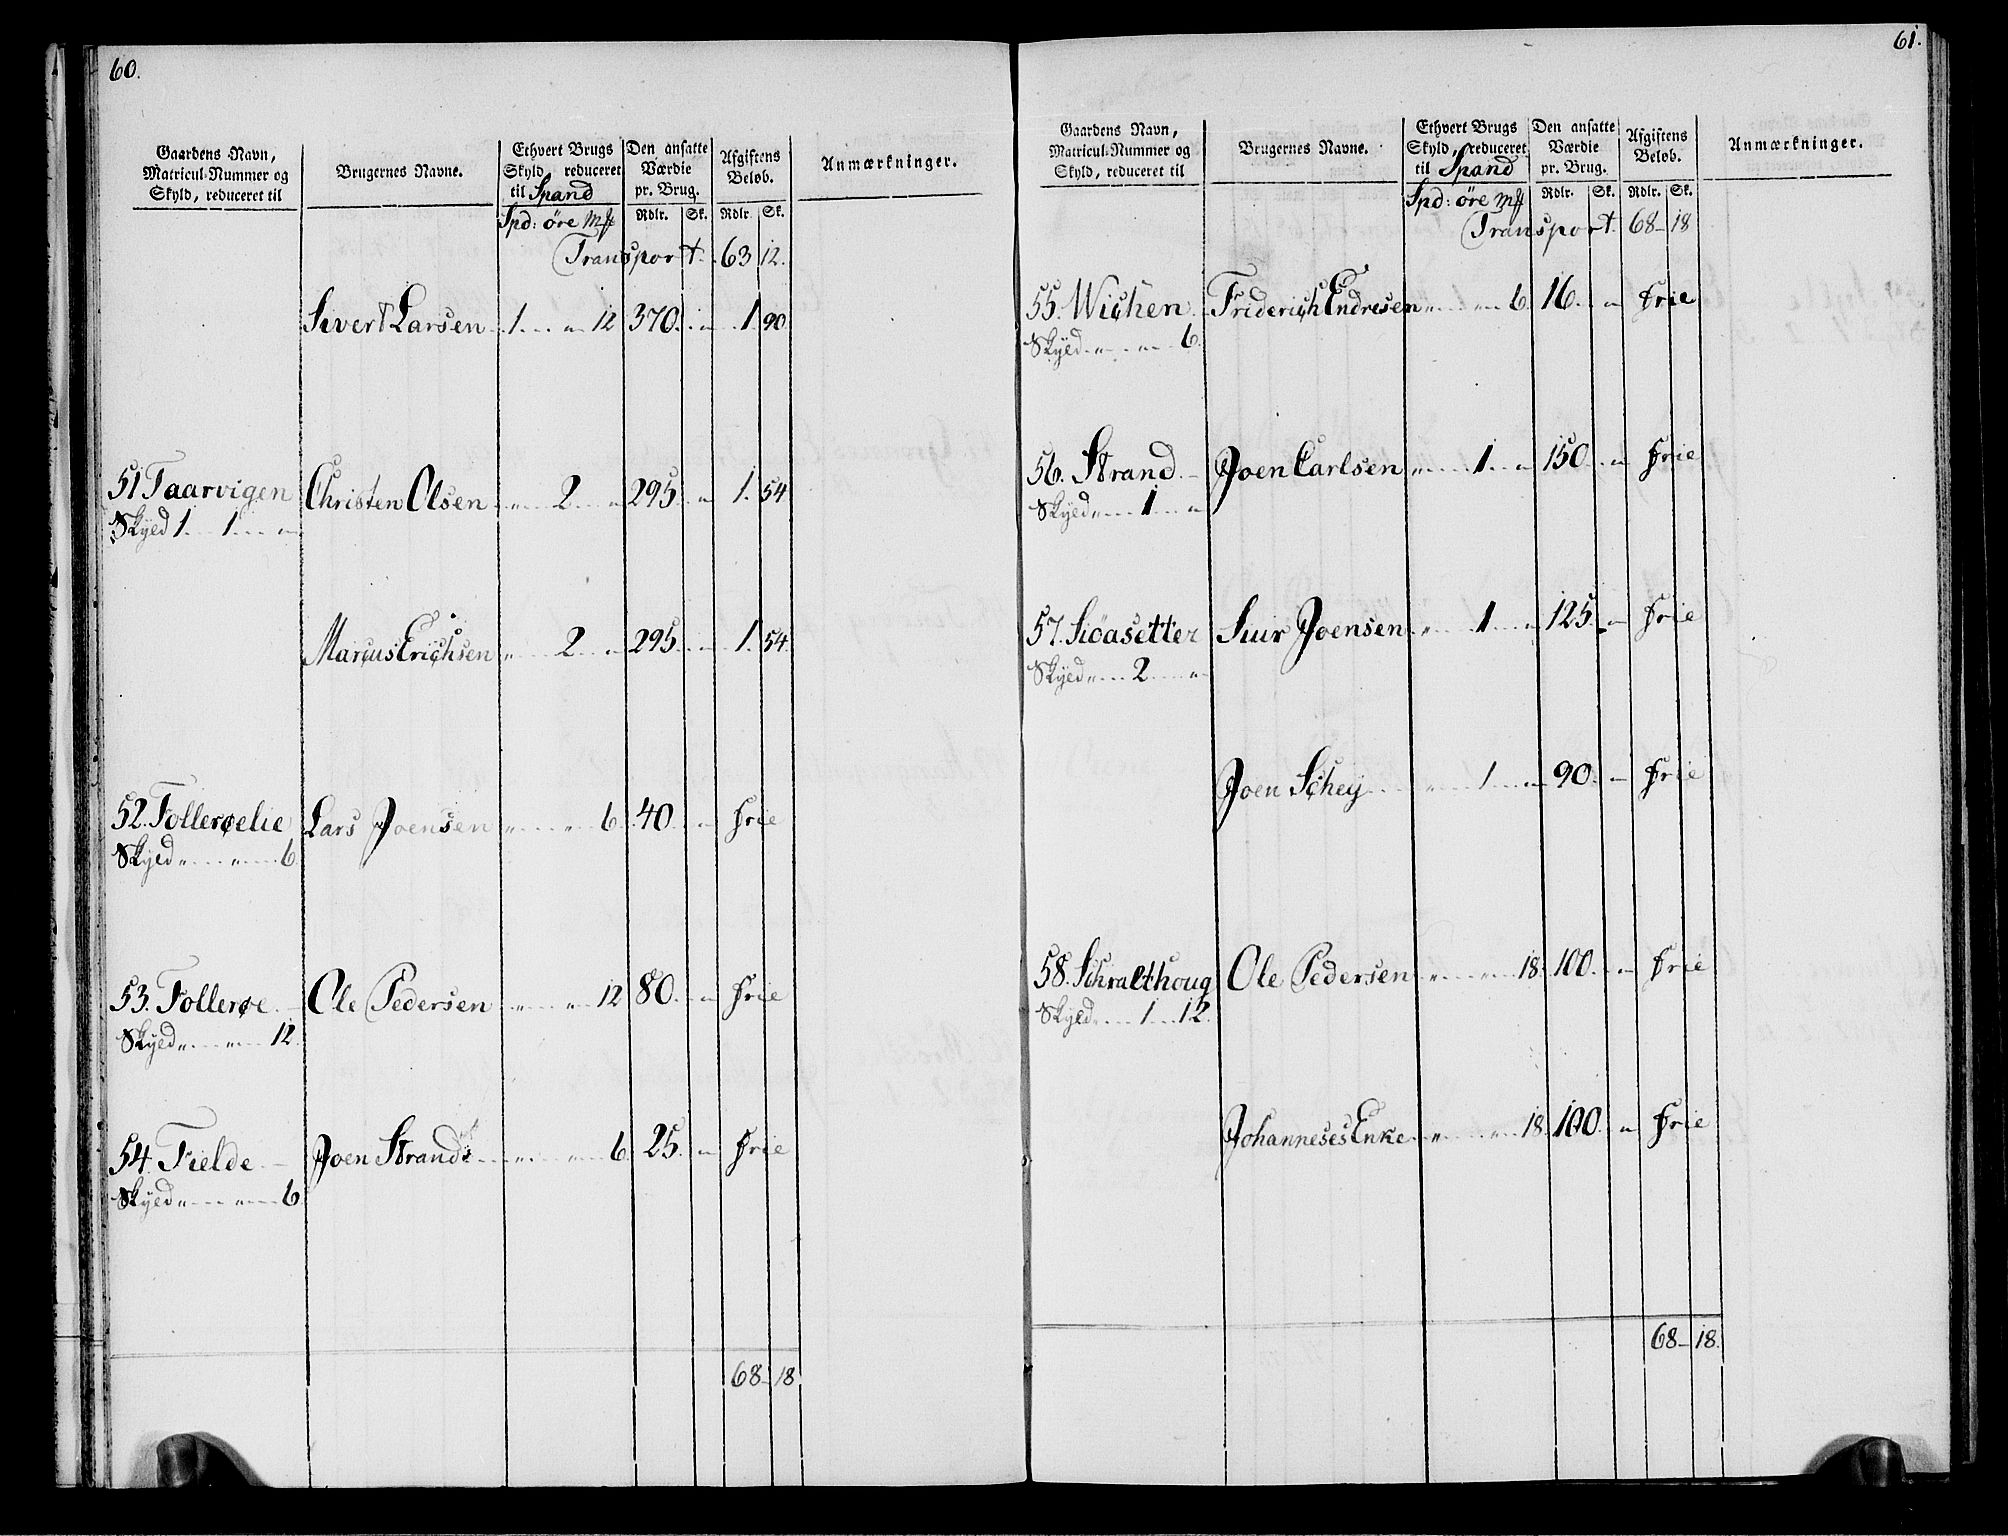 60.
Gaardens Navn, Matricul-Nummer og Skyld, reduceret til | Brugernes Navne. | Ethvert Brugs Skyld, reduceret til Spand | Den ansatte Værdie pr. Brug. | Afgiftens Beløb. | Anmærkninger.
Spd: öre | Rdlr. | Sk. | Rdlr. | Sk.
Transport. 63 12.
Sivert Larsen 1 .. „ 12 370. „ 1. 90
51 Taarvigen Christen Olsen „ 2 „ 295. „ 1. 54
Skyld 1 .. 1 .. „
Marcus Erichsen „ 2 „ 295. „ 1. 54.
52. Follerøelie Lars Joensen „ „ 6 40. „ frie
Skyld „ „ 6
53. Follerøe. Ole Pedersen „ „ 12 80. „ frie
Skyld „ „ 12.
54. Fielde Joen Strands „ „ 6. 25. „ frie
Skyld „ „ 6.
68 - 18
61.
Gaardens Navn, Matricul-Nummer og Skyld, reduceret til | Brugernes Navne. | Ethvert Brugs Skyld, reduceret til Spand | Den ansatte Værdie pr. Brug. | Afgiftens Beløb. | Anmærkninger.
Spd: öre | Rdlr. | Sk. | Rdlr. | Sk.
Transport. 68 - 18
55. Wichen Friderich Endresen „ „ 6. 16. „ frie
Skyld „ „ 6.
56. Strand Joen Carlsen „ 1 „ 150. „ frie
Skyld „ 1 „
57. Siöasetter Siur Joensen „ 1 „ 125. „ frie
Skyld „ 2 „
Joen Schey „ 1 „ 90. „ frie
58. Schralthoug Ole Pedersen „ „ 18. 100. „ frie
Skyld „ 1 12.
Johanneses Enke „ „ 18. 100. „ frie
68 - 18.